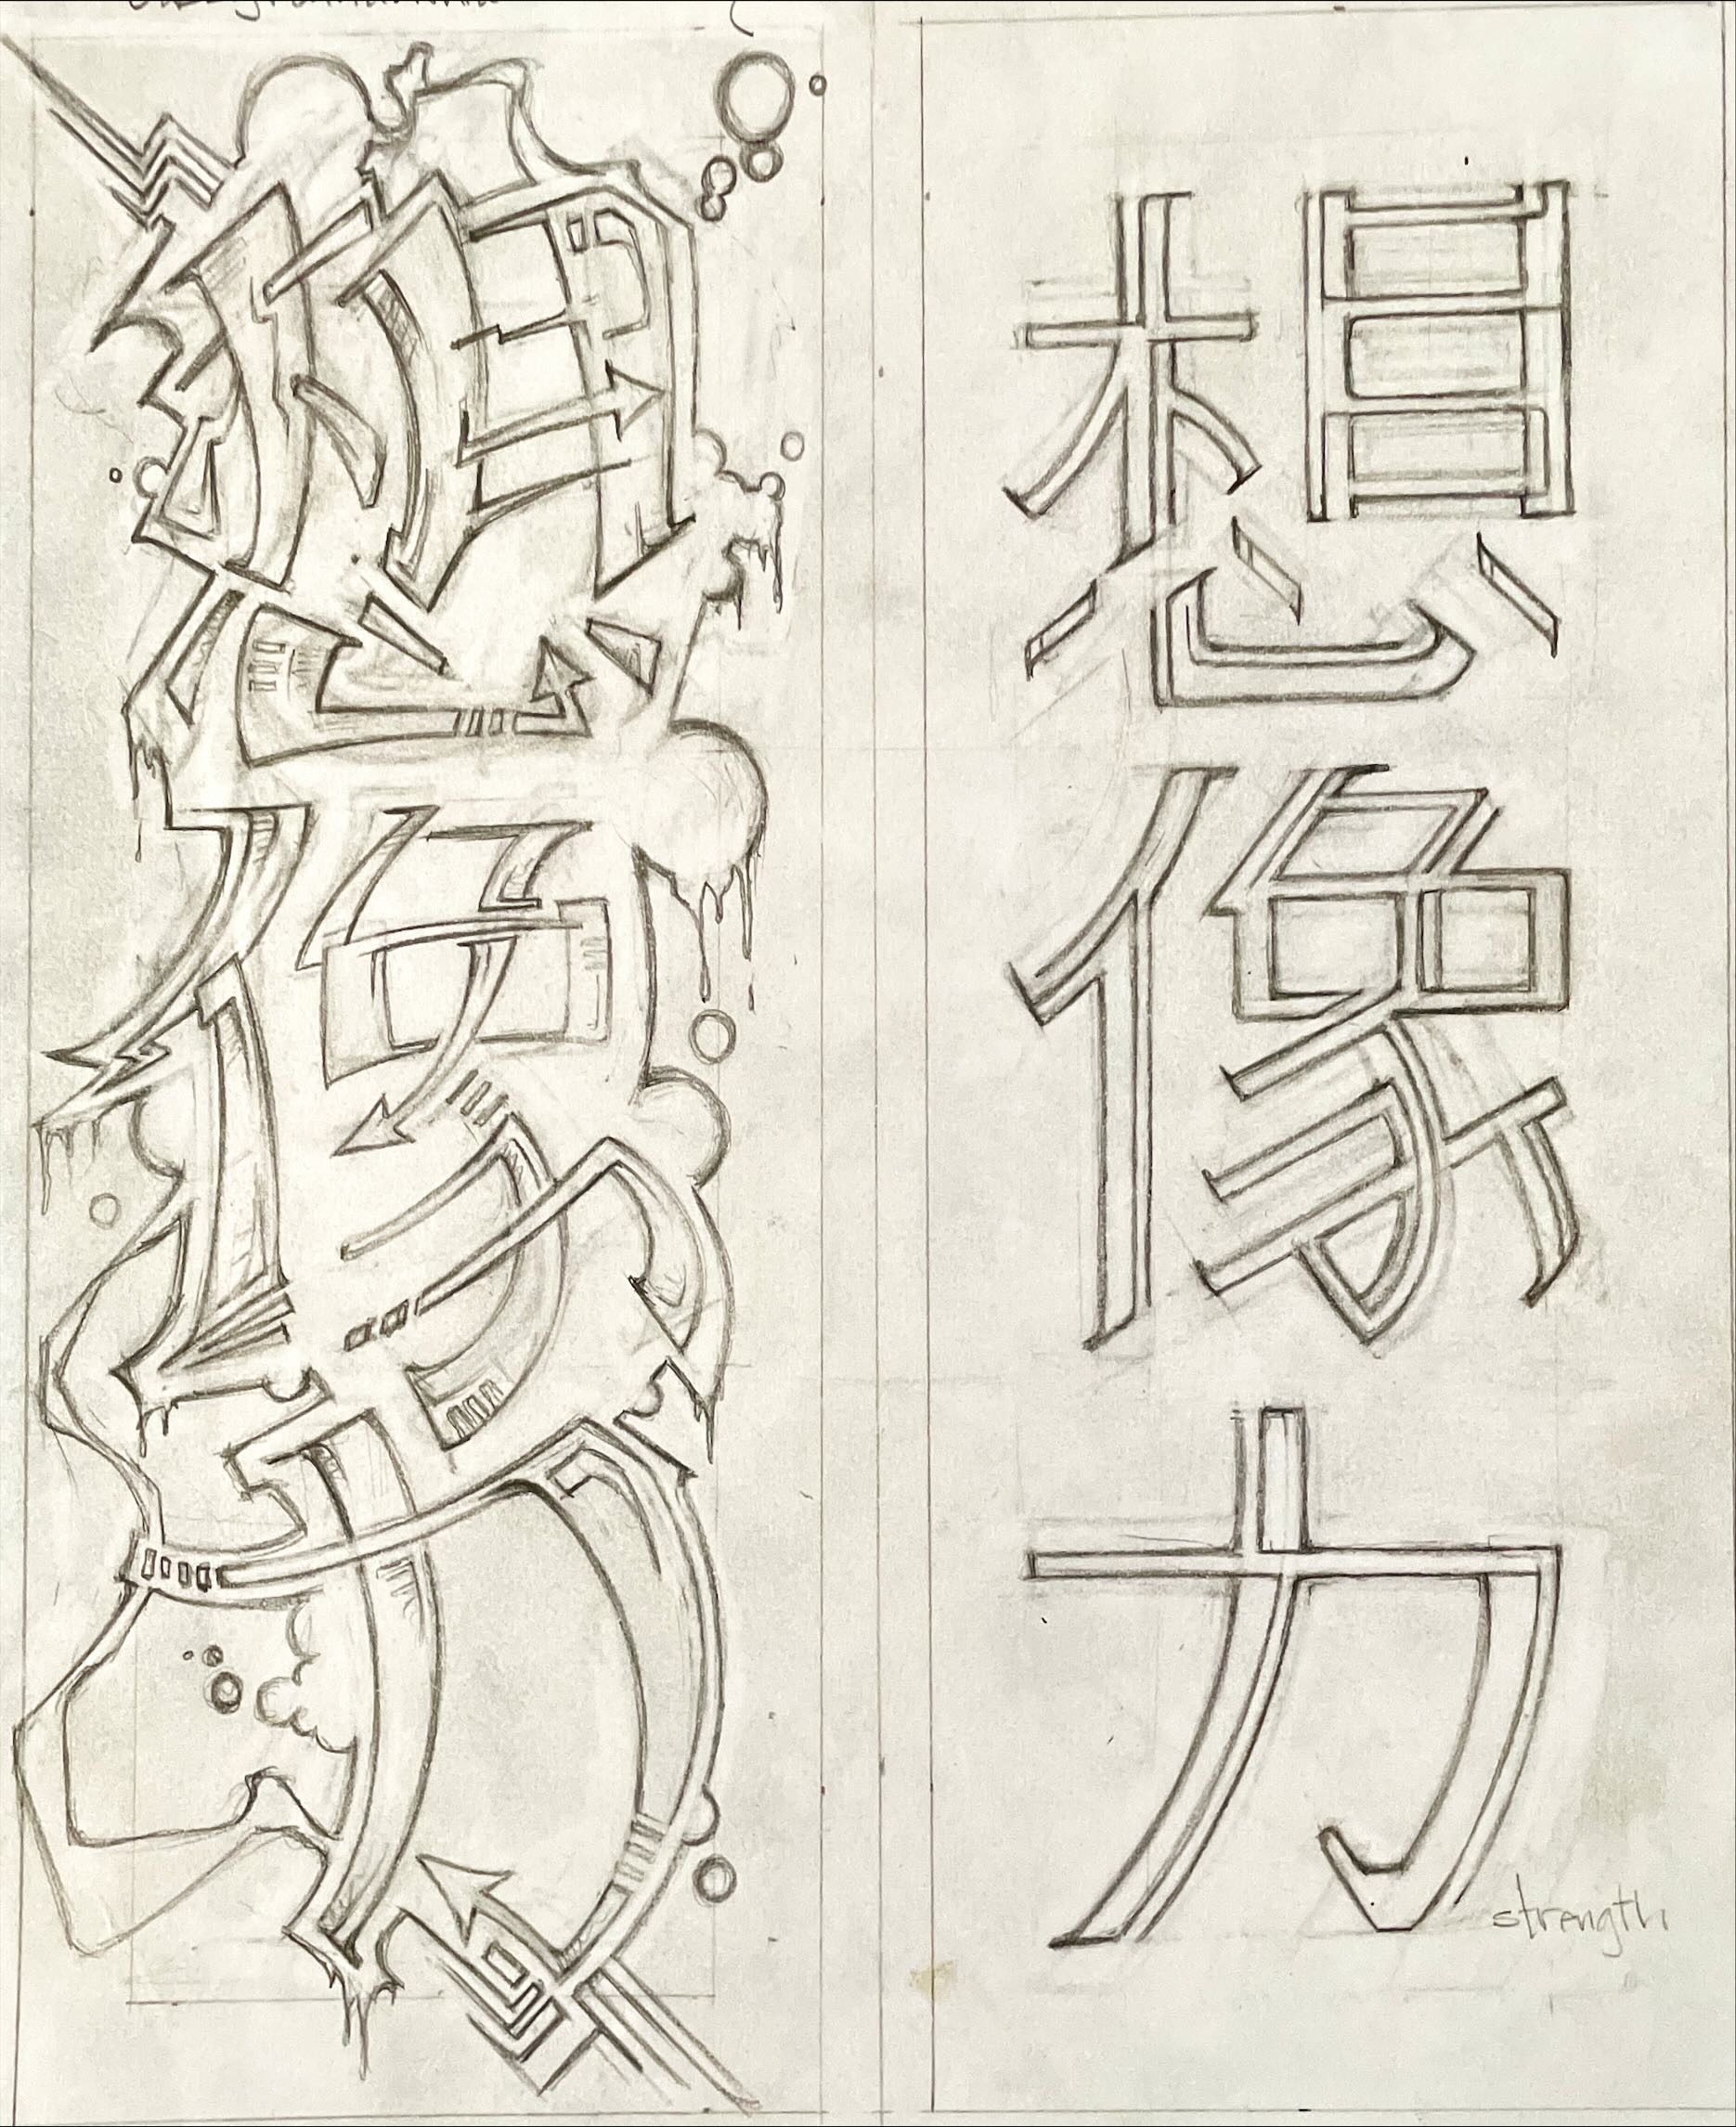 想像力
想像力
strength